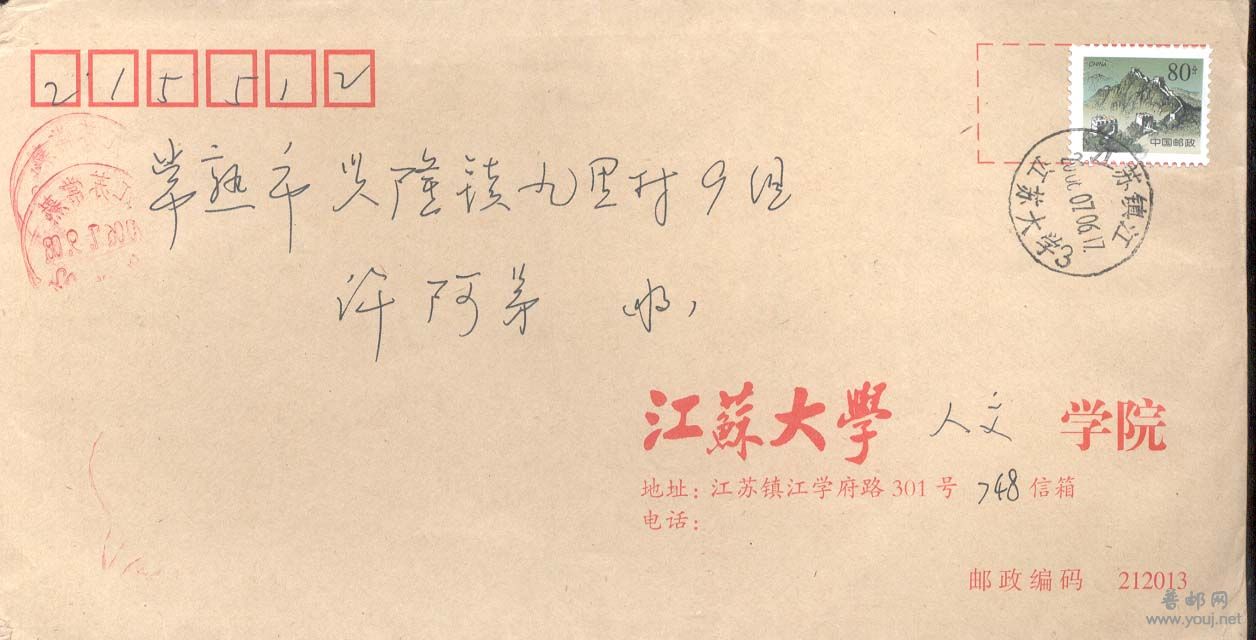 215512
CHINA 80分
中国邮政
江苏镇江
2006.07.06.17
江苏大学3
常熟市兴隆镇九里村9组
许阿弟 收
江蘇大學 人文 学院
地址：江苏镇江学府路301号 748信箱
电话：
邮政编码 212013
普邮网
www.youj.net